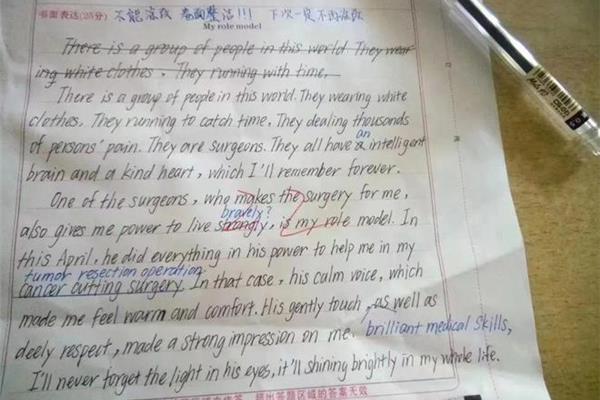 书面表达(25分) 不能涂改 卷面整洁!!! 下次一定不再涂改
My role model
There is a group of people in this world. They wear
ing white clothes. They running with time.
There is a group of people in this world. They wearing white
clothes. They running to catch time. They dealing thousands
of persons' pain. They are surgeons. They all have an intelligent
brain and a kind heart, which I'll remember forever.
One of the surgeons, who makes the surgery for me,
bravely?
also gives me power to live strongly, is my role model. In
this April, he did everything in his power to help me in my
tumor resection operation.
cancer cutting surgery. In that case, his calm voice, which
made me feel warm and comfort. His gently touch, as well as
deely respect, made a strong impression on me. brilliant medical skills,
I'll never forget the light in his eyes, it'll shining brightly in my whole life.
超出答题区域的答案无效